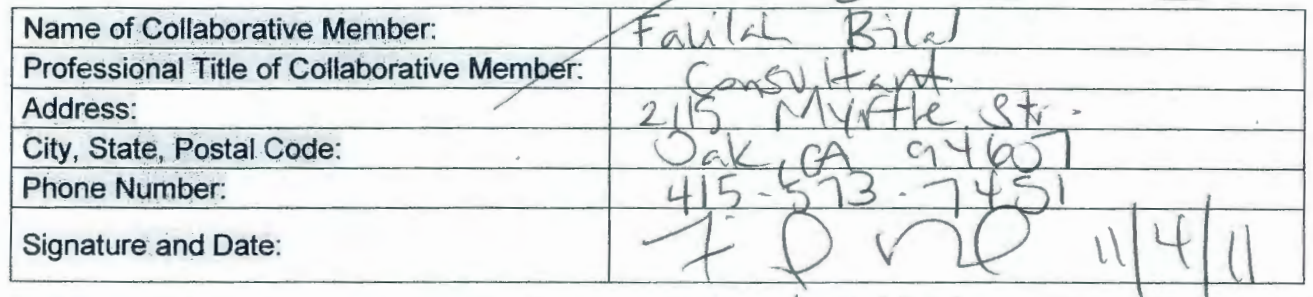 Name of Collaborative Member: Falilah Bilal
Professional Title of Collaborative Member: Consultant
Address: 2115 Myrtle Str.
City, State, Postal Code: Oak, CA 94607
Phone Number: 415-573-7451
Signature and Date: 11/4/11